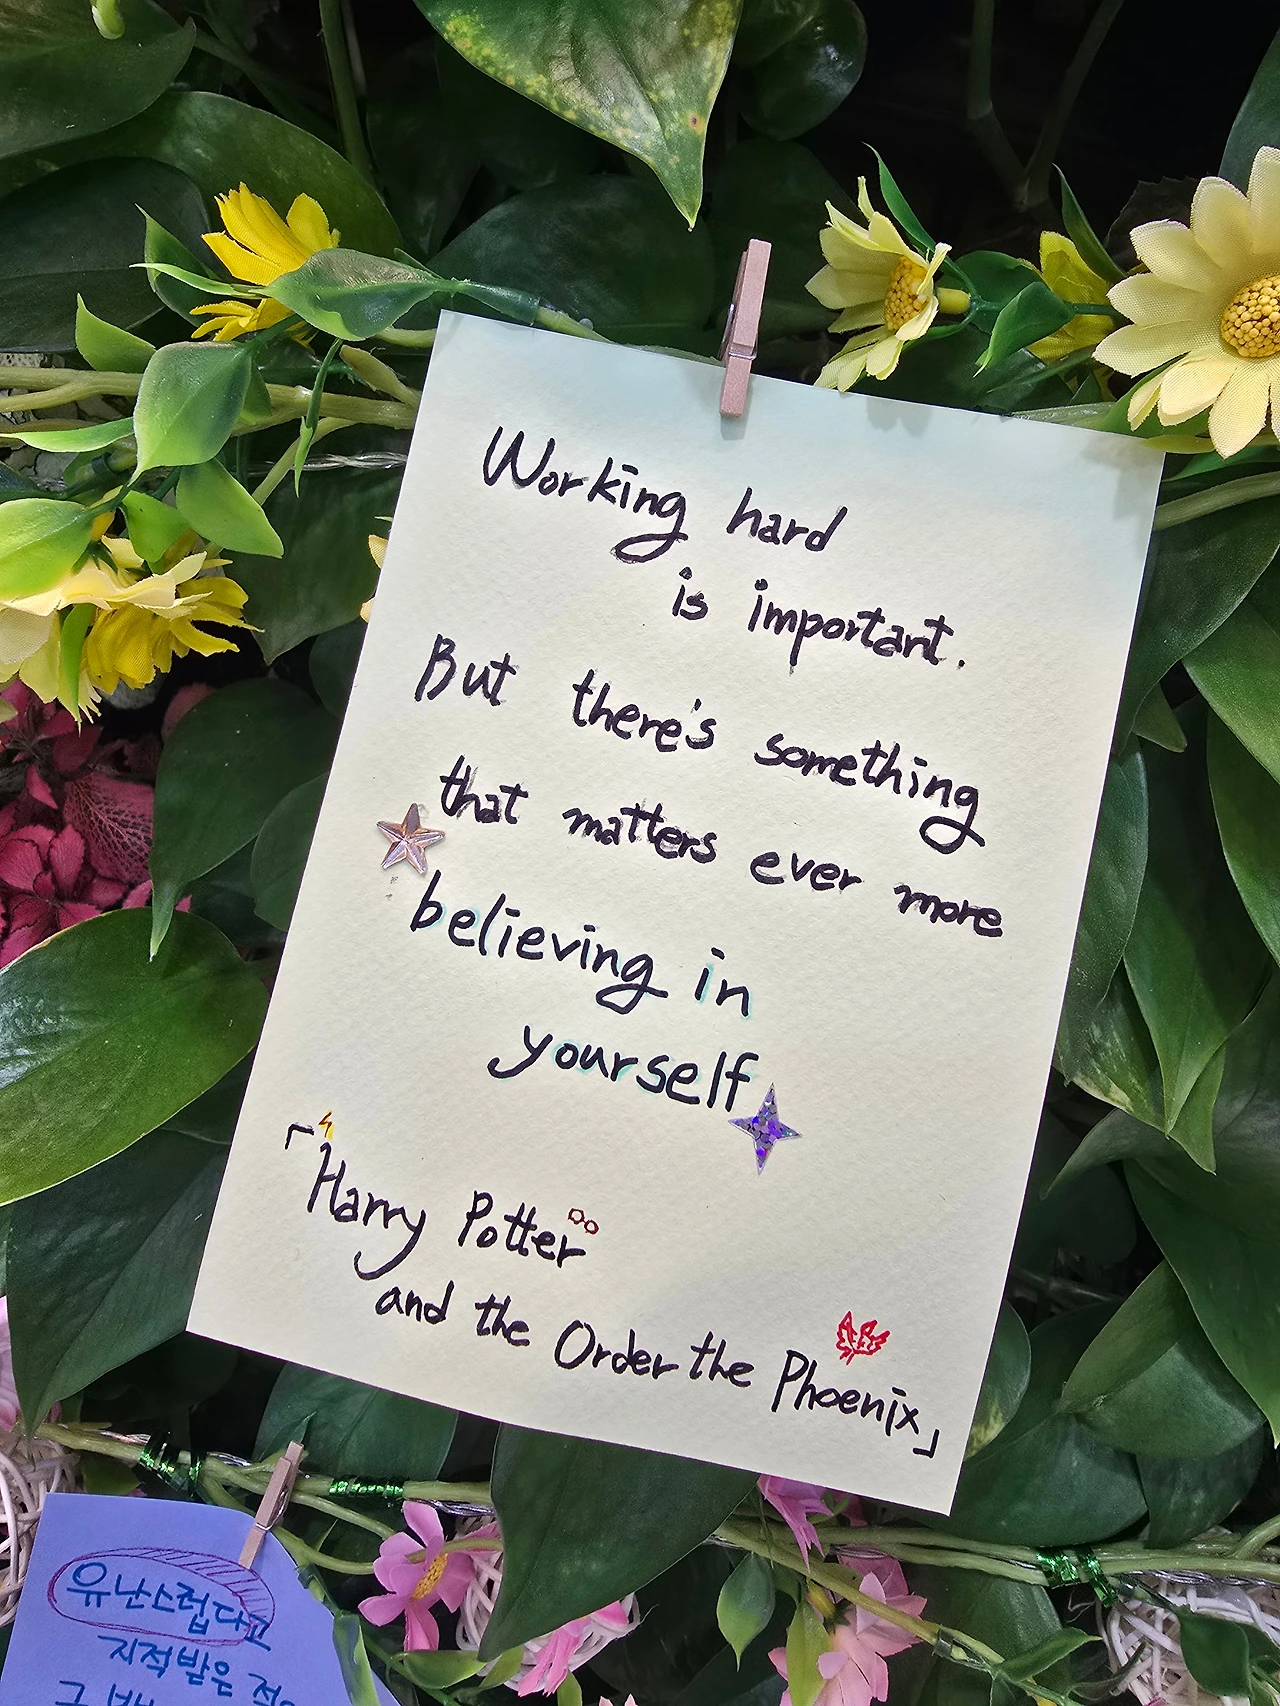 Working hard
is important.
But there's something
that matters ever more
believing in
yourself
「Harry Potter
and the Order the Phoenix」
유난스럽다고
지적받은
그